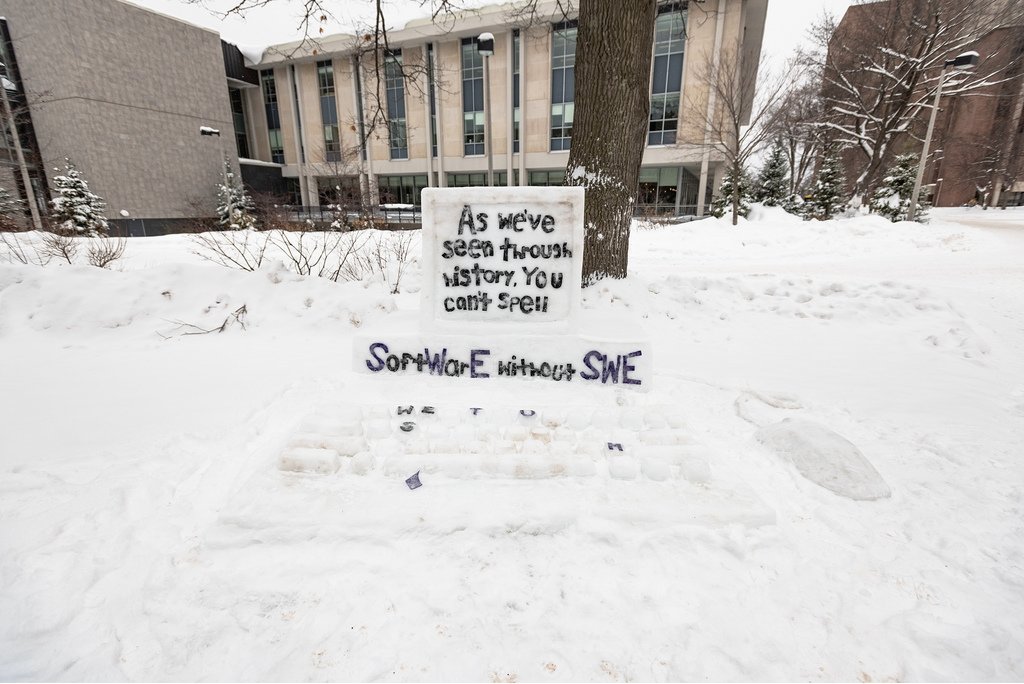 As we've
seen through
history, You
can't spell
SoftWarE without SWE
W E T U
S
H